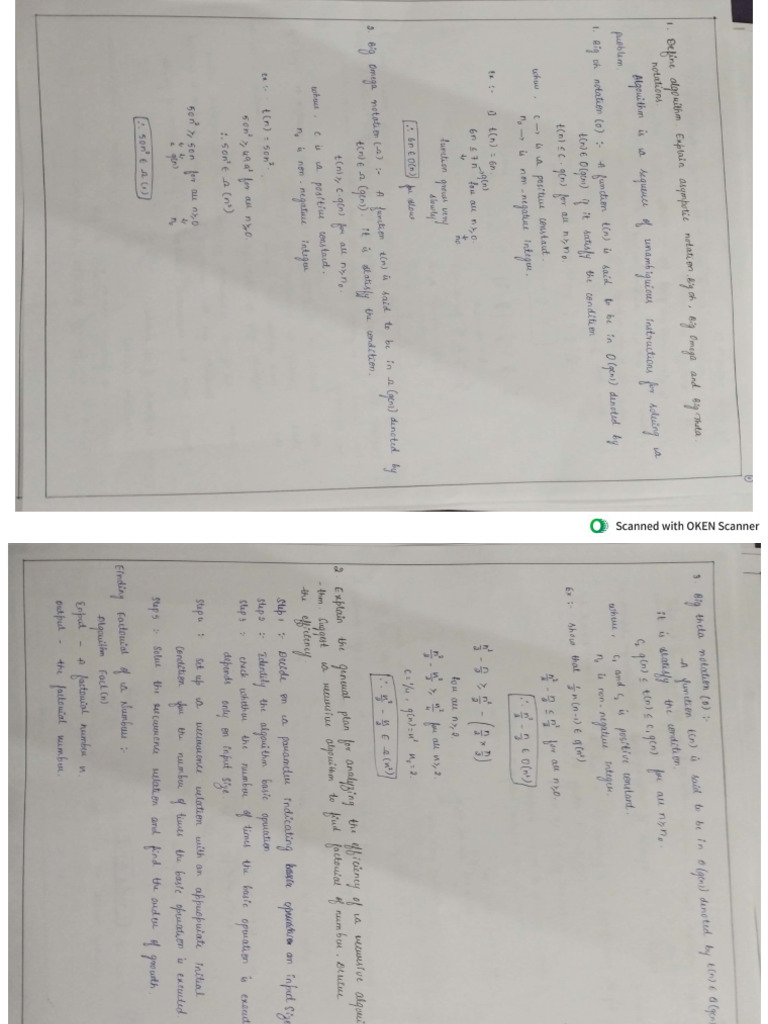 1. Define algorithm Explain asymptotic notation Big oh, Big Omega and Big Theta
notations
Algorithm is a sequence of unambiguous instructions for solving a
problem.
1. Big oh notation (O) :- A function t(n) is said to be in O(g(n)) denoted by
t(n) ∈ O(g(n)) if it satisfy the condition
t(n) ≤ c·g(n) for all n≥n₀.
where, c → is a positive constant.
n₀ → is non-negative integer.
ex :- t(n) = 6n
6n ≤ 7n → g(n) for all n≥0
n₀
function grows very
slowly
∴ 6n ∈ O(n) for slow
2. Big Omega notation (Ω) :- A function t(n) is said to be in Ω(g(n)) denoted by
t(n) ∈ Ω(g(n)). It is satisfy the condition.
t(n) ≥ c g(n) for all n≥n₀.
where, c is a positive constant.
n₀ is non-negative integer
ex :- t(n) = 50n²
50n² ≥ 49n² for all n≥0
∴ 50n² ∈ Ω(n²)
50n² ≥ 50n for all n≥0
c g(n) n₀
Scanned with OKEN Scanner
3 Big theta notation (θ) :-
A function t(n) is said to be in θ(g(n)) denoted by t(n) ∈ θ(g(n)
it is satisfy the condition
C₂ g(n) ≤ t(n) ≤ c₁ g(n) for all n≥n₀.
where, c₁ and c₂ is positive constant.
n₀ is non-negative integer.
Ex :- show that ½ n(n-1) ∈ θ(n²)
n²/2 - n/2 ≤ n²/2 for all n≥0
∴ n²/2 - n/2 ∈ O(n²)
n²/2 - n/2 ≥ n²/2 - (n/2 × n/2)
for all n≥2
n²/2 - n²/4 ≥ n²/4 for all n≥2
c=1/4, g(n)=n² n₀=2.
∴ n²/2 - n/2 ∈ Ω(n²)
2 Explain the general plan for analyzing the efficiency of a recursive algori
-thm suggest a recursive algorithm to find factorial of number. Derive
-the efficiency
Step 1 :- Decide on a parameter indicating basic operation an input size
Step 2 :- Identify the algorithm basic operation
Step 3 :- check whether the number of times the basic operation is execut
depends only on input size
Step 4 :- Set up a recurrence relation with an appropriate initial
condition for the number of times the basic operation is executed
Step 5 :- Solve the recurrence relation and find the order of growth.
Finding Factorial of a Number :-
Algorithm Fact(n)
Input - A factorial number n.
Output - the factorial number.